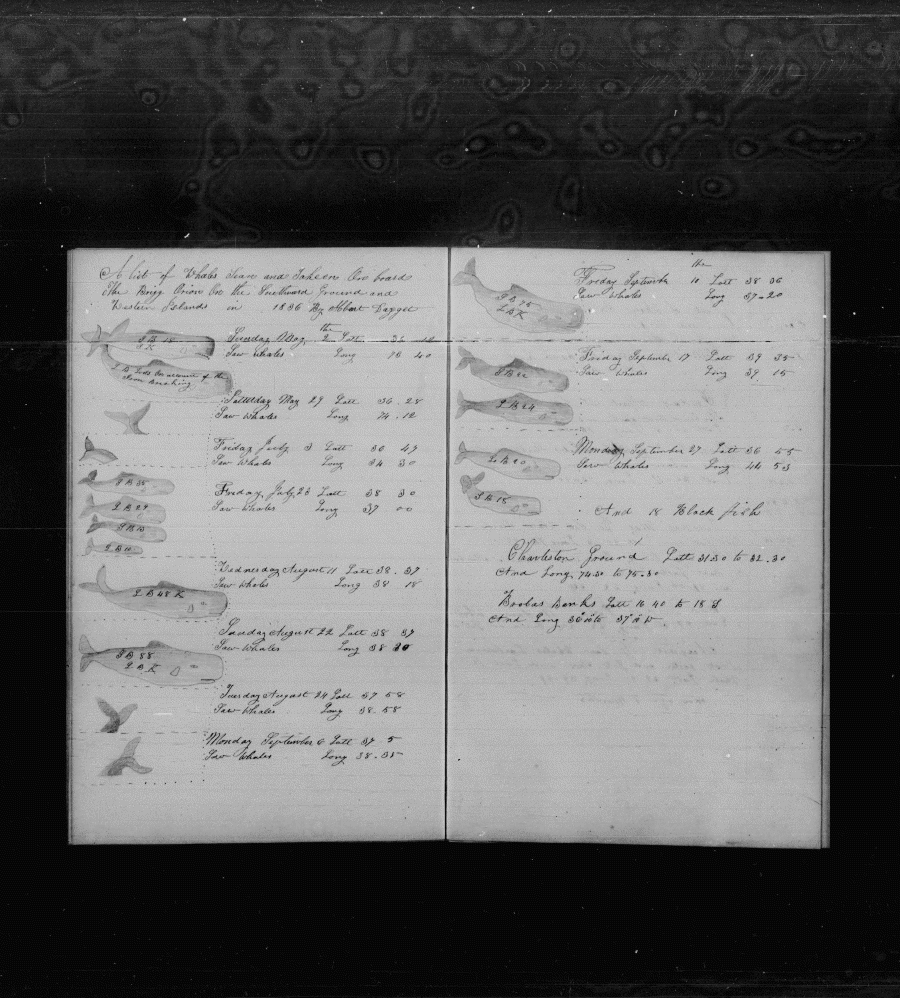 A list of Whales Sean and Takeen On board
The Brigg Orion On the Southward Ground and
Western Islands in 1836 By Albert Dagget
S B 18
K
Sunday May the 2 Latt 36
Saw Whales Long 76 40
L B Lost On account of the
Iron Breaking
Saturday May 29 Latt 36 . 28
Saw Whales Long 74 . 12
Friday July 3 Latt 36 47
Saw Whales Long 34 30
S B 35
Friday, July 23 Latt 38 30
Saw Whales Long 37 00
L B 29
S B 13
S B 10
Wednesday August 11 Latt 38 . 37
Saw Whales Long 38 18
L B 48 K
Sunday August 22 Latt 38 37
Saw Whales Long 38 30
S B 88
L B K
Tuesday August 24 Latt 37 58
Saw Whales Long 38 . 58
Monday September 6 Latt 37 5
Saw Whales Long 38 . 35
the
Friday September 10 Latt 38 36
Saw Whales Long 37 . 20
S B 75
L B K
Friday September 17 Latt 39 35
Saw Whales Long 39 15
S B 22
L B 24
Monday September 27 Latt 36 55
Saw Whales Long 44 53
L B 20
S B 18
And 18 Black fish
Charleston Ground Latt 31.30 to 32 . 30
And Long. 74.30 to 75 . 30
Boobas Banks Latt 16 40 to 18 S
And Long 36 to 37 W